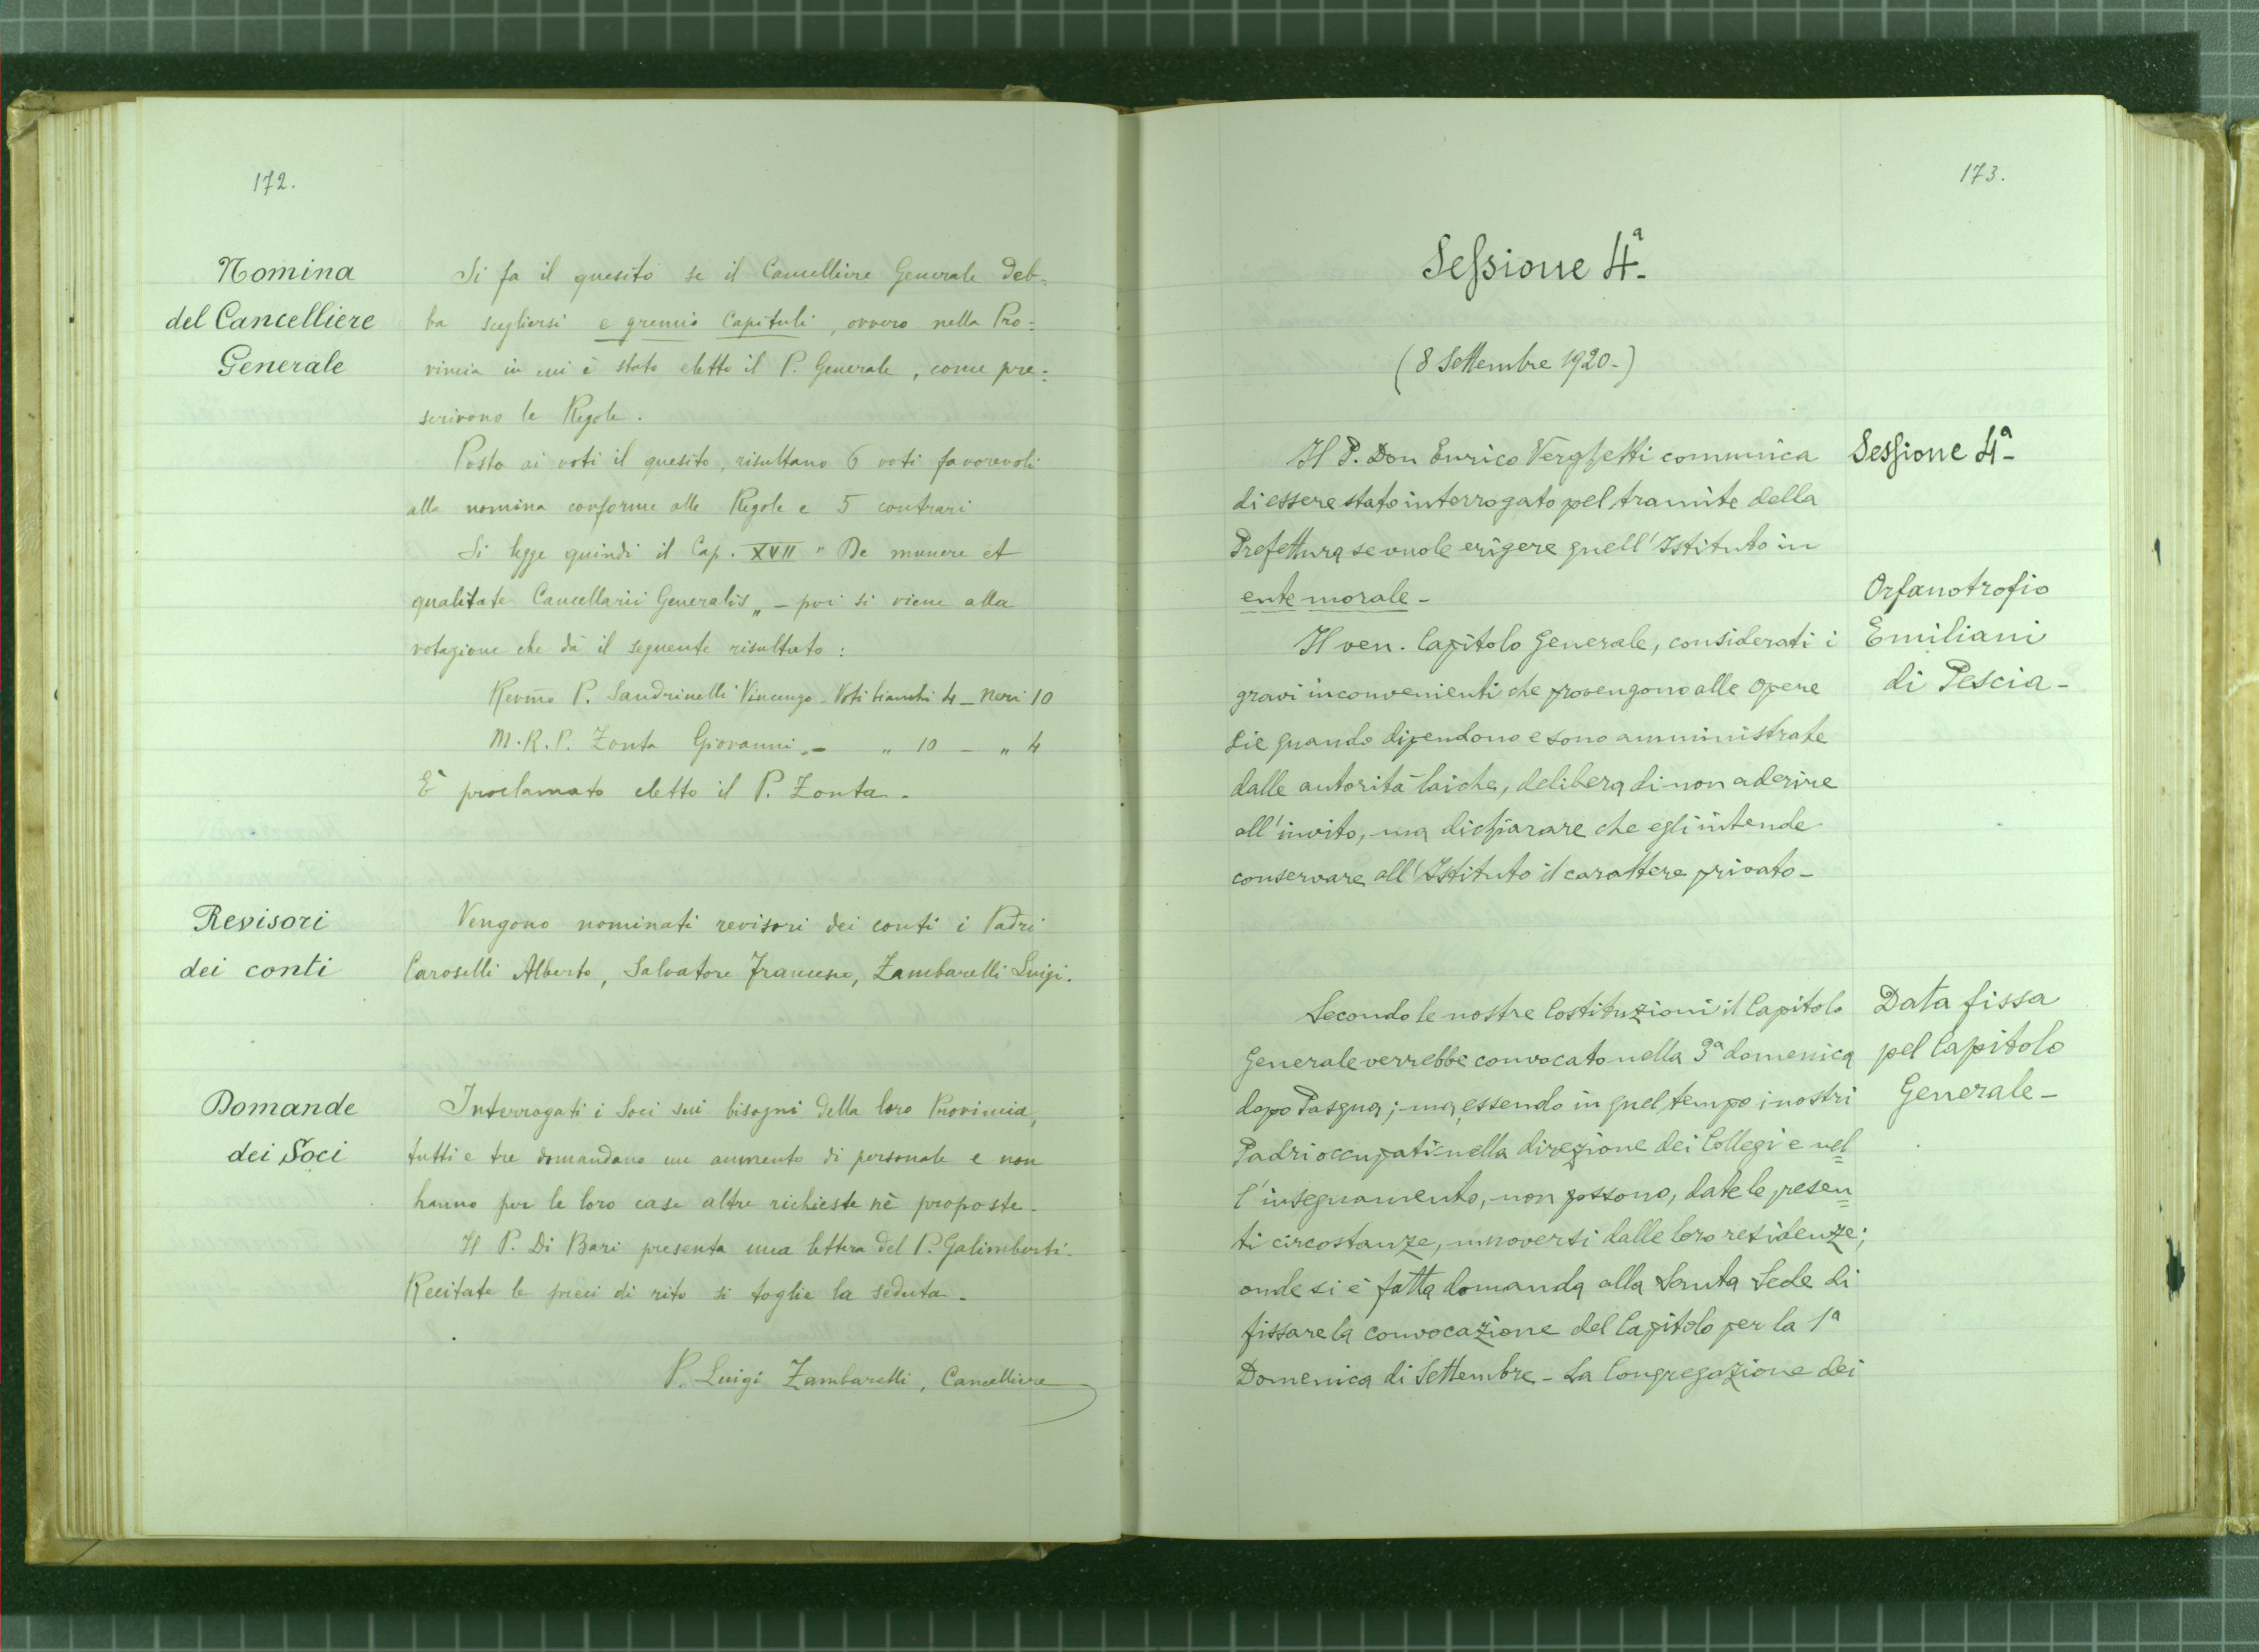 172.
Nomina
del Cancelliere
Generale
Si fa il quesito se il Cancelliere Generale deb=
ba scegliersi e gremio Capituli, ovvero nella Pro=
vincia in cui è stato eletto il P. Generale, come pre=
scrivono le Regole.
Posto ai voti il quesito, risultano 6 voti favorevoli
alla nomina conforme alle Regole e 5 contrari
Si legge quindi il Cap. XVII " De munere et
qualitate Cancellarii Generalis „ - poi si viene alla
votazione che dà il seguente risultato :
Revmo P. Sandrinelli Vincenzo - Voti bianchi 4 - Neri 10
M.R.P. Zonta Giovanni - „ 10 - „ 4
È proclamato eletto il P. Zonta.
Revisori
dei conti
Vengono nominati revisori dei conti i Padri
Caroselli Alberto, Salvatore Francesco, Zambarelli Luigi.
Domande
dei Soci
Interrogati i Soci sui bisogni della loro Provincia,
tutti e tre domandano un aumento di personale e non
hanno per le loro case altre richieste nè proposte.
Il P. Di Bari presenta una lettera del P. Galimberti.
Recitate le preci di rito si toglie la seduta.
P. Luigi Zambarelli, Cancelliere
173.
Sessione 4ª
(8 Settembre 1920-)
Sessione 4ª
Il P. Don Enrico Verghetti comunica
di essere stato interrogato pel tramite della
Prefettura se vuole erigere quell'Istituto in
ente morale -
Orfanotrofio
Emiliani
di Pescia -
Il ven. Capitolo Generale, considerati i
gravi inconvenienti che provengono alle opere
pie quando dipendono e sono amministrate
dalle autorità laiche, delibera di non aderire
all'invito, ma dichiarare che egli intende
conservare all'Istituto il carattere privato -
Data fissa
pel Capitolo
Generale -
Secondo le nostre Costituzioni il Capitolo
Generale verrebbe convocato nella 3ª domenica
dopo Pasqua; ma, essendo in quel tempo i nostri
Padri occupati nella direzione dei Collegi e nel=
l'insegnamento, non possono, date le presen=
ti circostanze, muoversi dalle loro residenze;
onde si è fatta domanda alla Santa Sede di
fissare la convocazione del Capitolo per la 1ª
Domenica di Settembre - La Congregazione dei